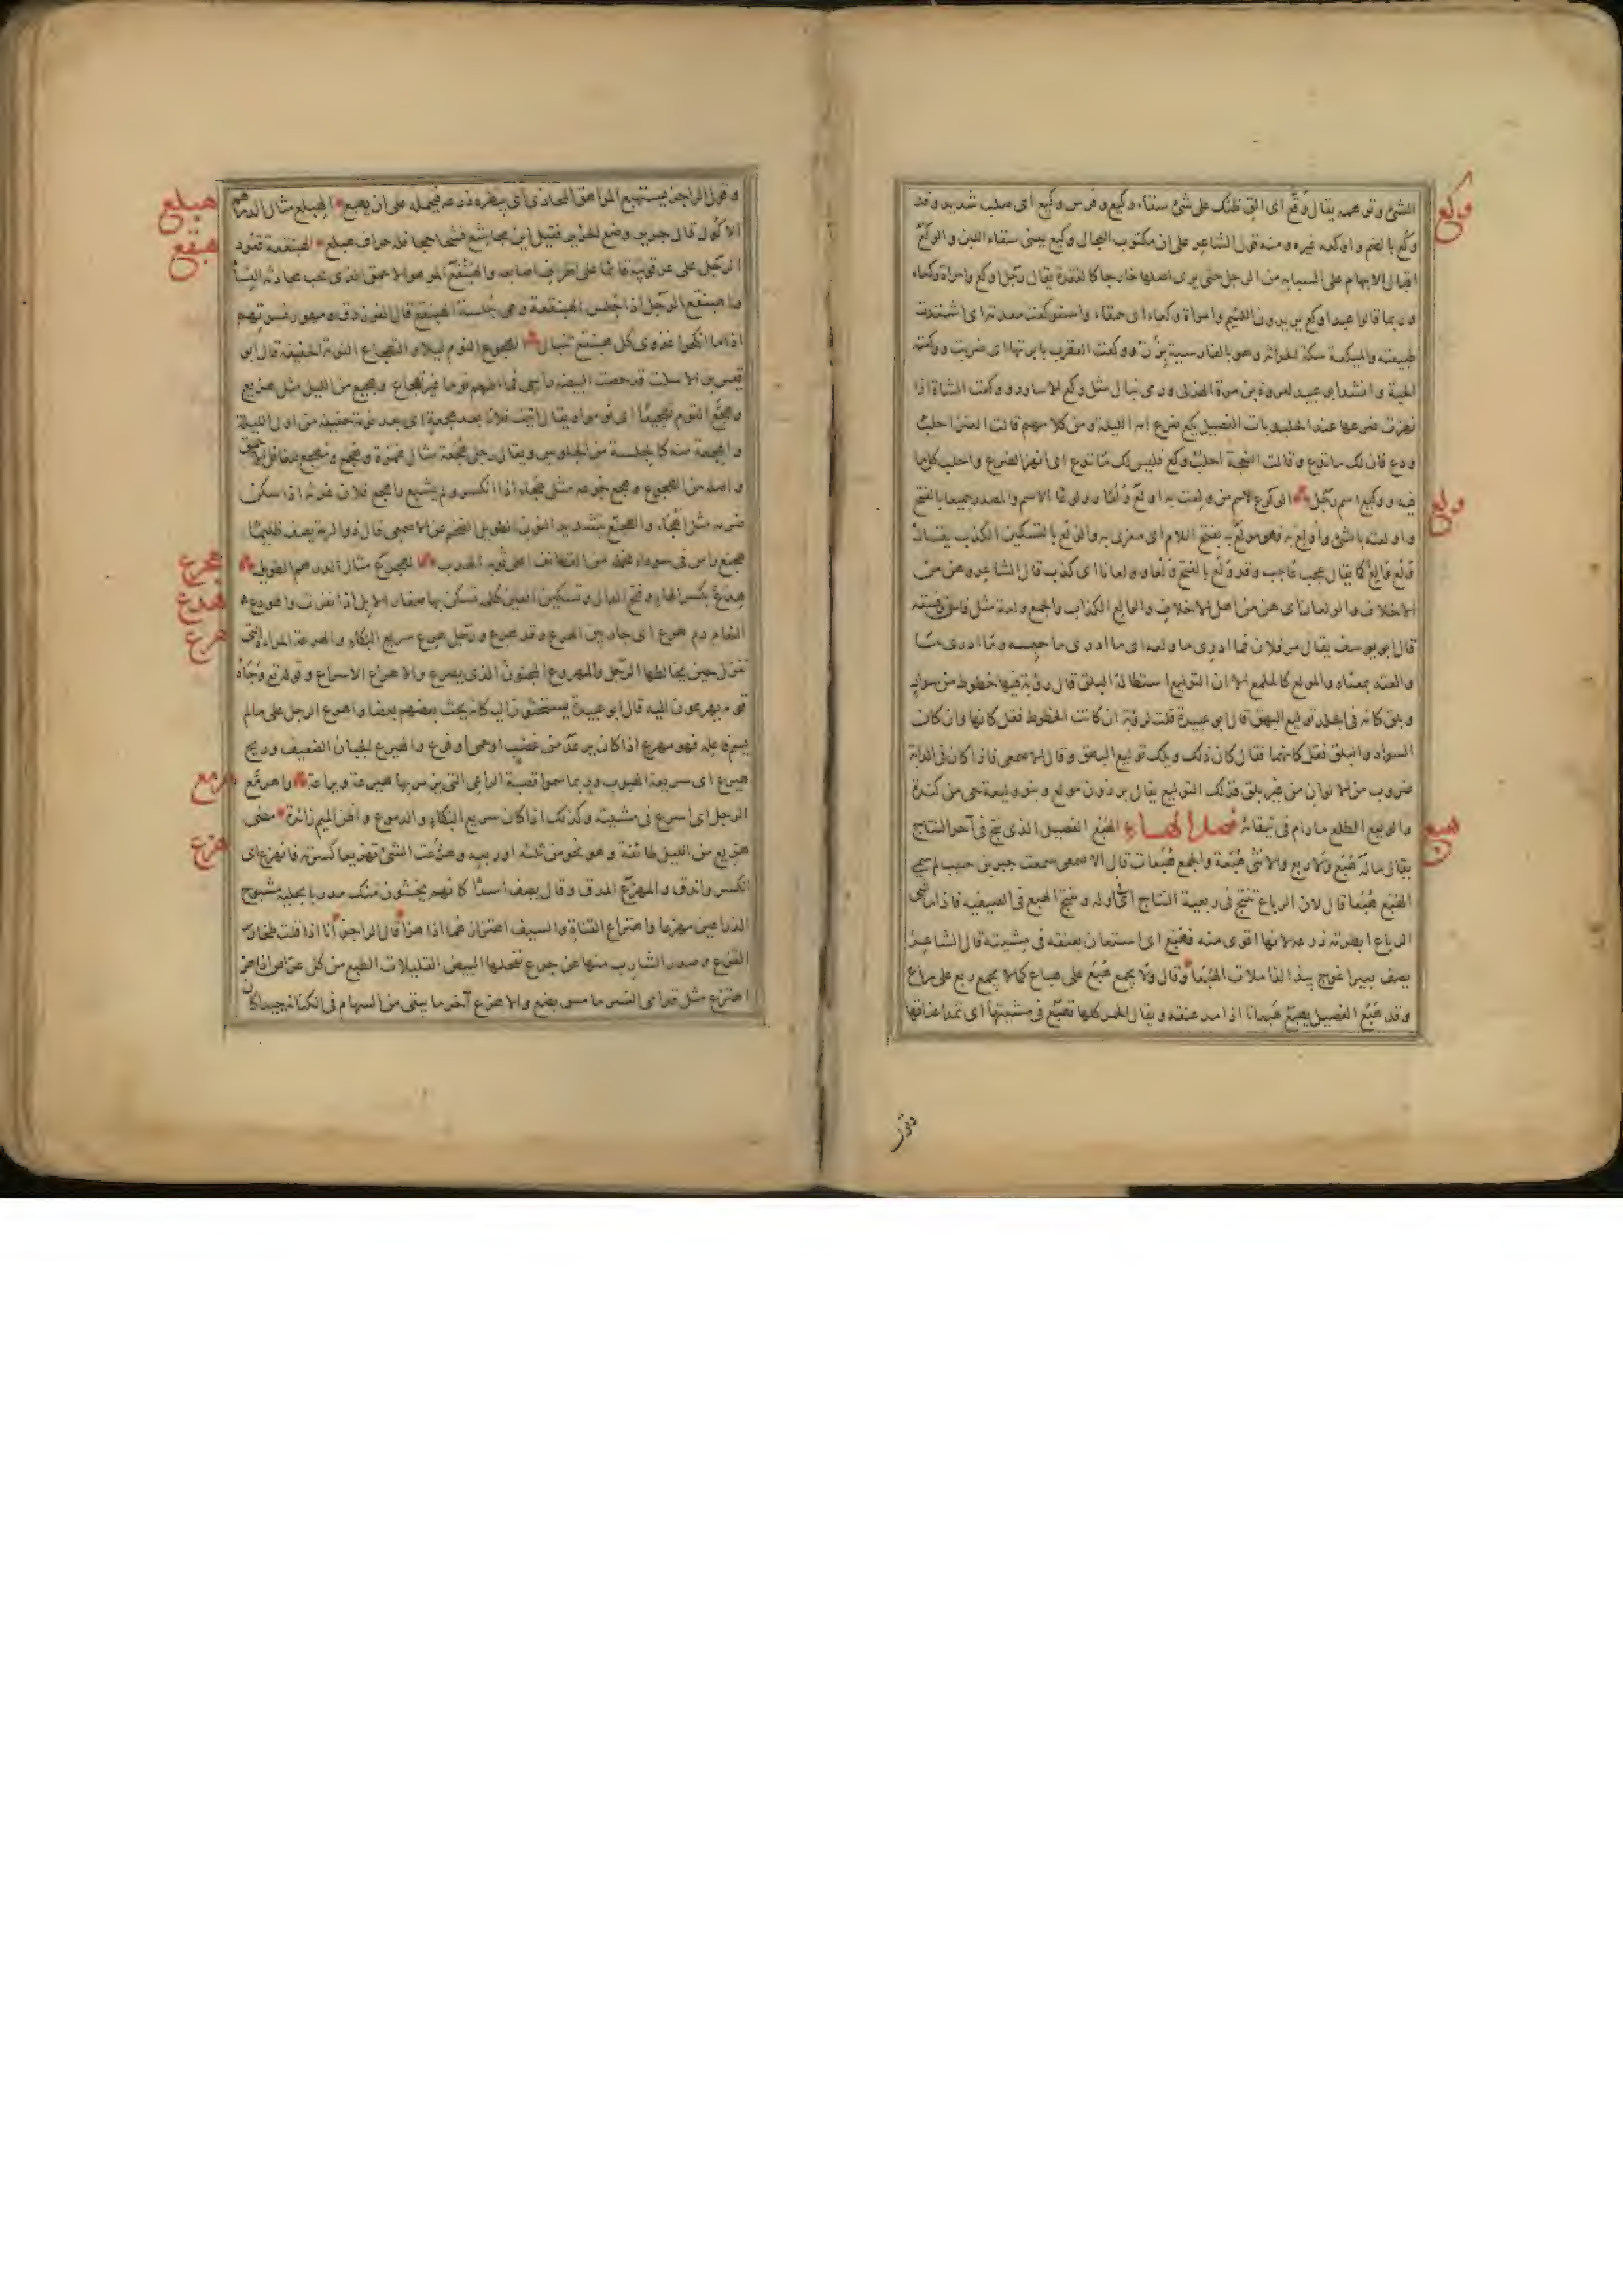 الشئ وتوهمه يقال وقع اى الق ظنك على شئ سقاء وكيع وفرس وكيع اى صلب شديد وقد
وكع
وكع بالضم واوكعه غيره ومنه قول الشاعر على ان مكتوب العجال وكيع يعنى سقاء اللبن والوكع
اقبال الابهام على السبابه من الرجل حتى يرى اصلها خارجا كالعقدة يقال رجل اوكع وامراة وكعاء
وربما قالوا عبد اوكع يريدون اللئيم وامراة وكعاء اى حمقاء واستوكعت معدته اى اشتدت
طبيعته والميكعة سكة الحراثة وهو بالفارسية بزن ووكعت العقرب بابرتها اى ضربت ووكعته
الحية وانشد ابو عبيد لعروة بن مرة الهذلى ورمى نبال مثل وكع الاساود ووكعت الشاة اذا
نهزت ضرعها عند الحلب وبات الفصيل يكع ضرع امه الليلة ومن كلامهم قالت العنز احلب
ودع فان لك ما تدع وقالت النعجة احلب وكع فليس لك ما تدع اى انهز الضرع واحلب كل ما
فيه ووكيع اسم رجل الولوع الاسم من ولعت به اولع ولعا وولوعا الاسم والمصدر جميعا بالفتح
ولع
واولعته بالشئ واولع به فهو مولع به بفتح اللام اى مغرى به والولع بالتسكين الكذب يقال
ولع والع كما يقال عجب عاجب وقد ولع بالفتح ولعا وولعانا اى كذب قال الشاعر وهن من
الاخلاف والولعان اى هن من اهل الاخلاف والوالع الكذاب والجمع ولعة مثل فاسق وفسقه
قال ابو يوسف يقال مر فلان فما ادرى ما ولعه اى ما ادرى ما حبسه وما ادرى ما
والعته بمعناه والمولع كالملمع الا ان التوليع استطالة البلق قال رؤبة فيها خطوط من سواد
وبلق كانه فى الجلد توليع البهق قال ابو عبيدة قلت لرؤبة ان كانت الخطوط فقل كانها وان كان
السواد والبلق فقل كانهما فقال كان ذلك ويلك توليع البهق وقال الاصمعى فاذا كان فى الدابة
ضروب من الالوان من غير بلق فذلك التوليع يقال برذون مولع وبنو وليعة حى من كندة
والوليع الطلع ما دام فى قيقائه فصل الهاء الهبع الفصيل الذى نتج فى آخر النتاج
هبع
يقال ماله هبع ولا ربع والانثى هبعة والجمع هبعات قال الاصمعى سمعت جبر بن حبيب لم سمى
الهبع هبعا قال لان الرباع تنتج فى ربعية النتاج اى اوله وينتج الهبع فى الصيفية فاذا ماشى
الرباع ابطرته ذرعه لانها اقوى منه فهبع اى استعان بعنقه فى مشيته قال الشاعر
يصف بعيرا غوج يبذ الذاملات الهبعا وقال ولا يجمع هبع على هباع كما لا يجمع ربع على رباع
وقد هبع الفصيل يهبع هبعانا اذا مد عنقه ويقال الحمر كلها تهبع فى مشيتها اى تمد اعناقها
وقول
وقول الراجز يستهبع المواهق المحاذى اى يبطره ذرعه فيحمله على ان يهبع الهبلع مثال الدرهم
هبلع
الاكول قال جرير وضع الخزير فقيل اين مجاشع فشحا جحافله جراف هبلع الهبنقعة قعود
هبقع
الرجل على عرقوبيه قائما على اطراف اصابعه والهبنقع المزهو الاحمق الذى يحب محادثة النساء
واهبنقع الرجل اذا جلس الهبنقعة وهى جلسة الهبنقع قال الفرزدق ومهور نسوتهم
اذا ما انكحوا غدوى كل هبنقع تنبال الهجوع النوم ليلا والتهجاع النومة الخفيفة قال ابو
قيس بن الاسلت قد حصت البيضة راسى فما اطعم نوما غير تهجاع وهجيع من الليل مثل هزيع
وهجع القوم تهجيعا اى نوموا ويقال اتيت فلانا بعد هجعة اى بعد نومة خفيفة من اول الليلة
والهجعة منه كالجلسة من الجلوس ويقال رجل هجعة مثال همزة وهجع ومهجع للغافل الاحمق
واصله من الهجوع وهجع جوعه مثل هجأ اذا انكسر ولم يشبع واهجع فلان غرثه اذا سكن
ضرمه مثل اهجأ والهجنع بتشديد النون الطويل الضخم عن الاصمعى قال ذو الرمة يصف ظليما
هجنع راس فى سوداء مخملة من القطائف اعلى ثوبه الهدب الهجرع مثال الدرهم الطويل
هجرع
هدع بكسر الهاء وفتح الدال وتسكين العين كلمة تسكن بها صغار الابل اذا نفرت والهودع
هدع
النعام دم هرع اى جار بين الهرع وقد هرع ورجل هرع سريع البكاء والهرعة المراة التى
هرع
تنزل حين يخالطها الرجل والمهروع المجنون الذى يصرع والاهراع الاسراع وقوله تع وجاءه
قومه يهرعون اليه قال ابو عبيدة يستحثون اليه كانه يحث بعضهم بعضا واهرع الرجل على ما لم
يسم فاعله فهو مهرع اذا كان يرعد من غضب او حمى او فزع والهيرع الجبان الضعيف وريح
هيرع اى سريعة الهبوب وربما سموا قصبة الراعى التى يزمر بها هيرعة ويراعة واهرمع
هرمع
الرجل اى اسرع فى مشيته وكذلك اذا كان سريع البكاء والدموع واظن الميم زائدة مضى
هزيع من الليل طائفة وهو نحو من ثلثه او ربعه وهزعت الشئ تهزيعا كسرته فانهزع اى
هزع
انكسر واندق والمهزع المدق وقال يصف اسدا كانهم يخشون منك مدربا بحلية مشبوح
الذراعين مهزعا واهتزاع القناة والسيف اهتزازهما اذا هزا قال الراجز انا اذا قلت طخارير
القزع وصدر الشارب منها عن جرع نفحلها البيض القليلات الطبع من كل عراص اذا هز
اهتزع مثل قدامى النسر ما مس بضع والاهزع آخر ما يبقى من السهام فى الكنانة جيدا كان